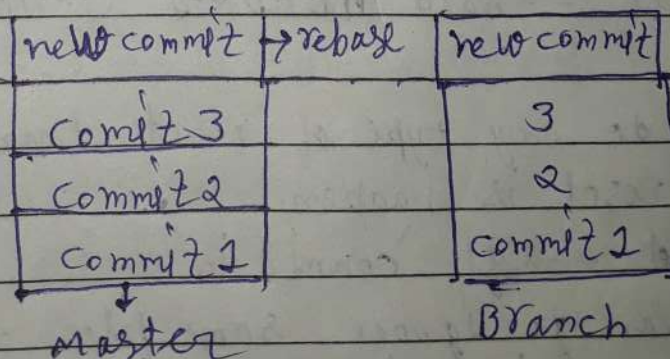 new commit → rebase new commit
Commit 3 3
Commit 2 2
Commit 1 Commit 1
Master Branch